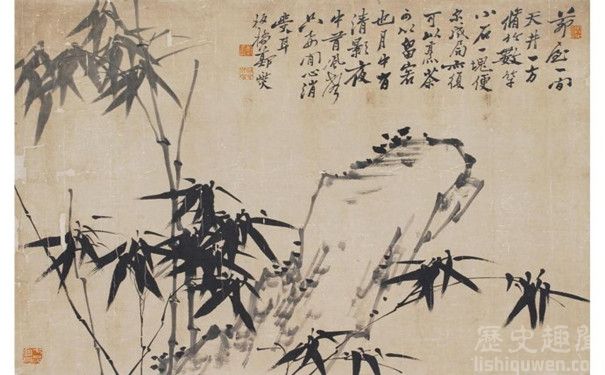 茅屋一間
天井一方
脩竹數竿
小石一塊便
尔成局亦復
可以烹茶
可以留客
也月中有
清影夜
中有風聲
只要閒心消
受耳
板橋鄭燮
歷史趣聞
lishiquwen.com